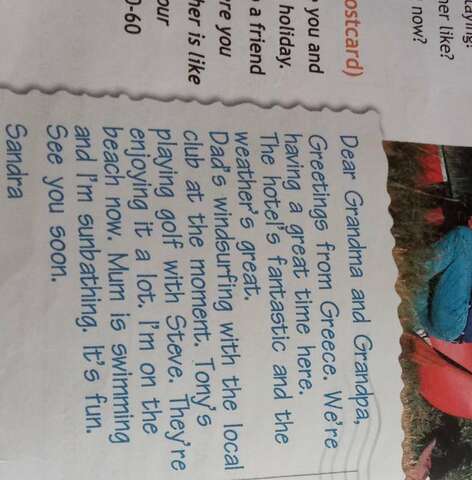 ostcard)
you and
holiday.
a friend
re you
her is like
our
0-60
laying?
her like?
now?
Dear Grandma and Grandpa,
Greetings from Greece. We're
having a great time here.
The hotel's fantastic and the
weather's great.
Dad's windsurfing with the local
club at the moment. Tony's
playing golf with Steve. They're
enjoying it a lot. I'm on the
beach now. Mum is swimming
and I'm surbathing. It's fun.
See you soon.
Sandra